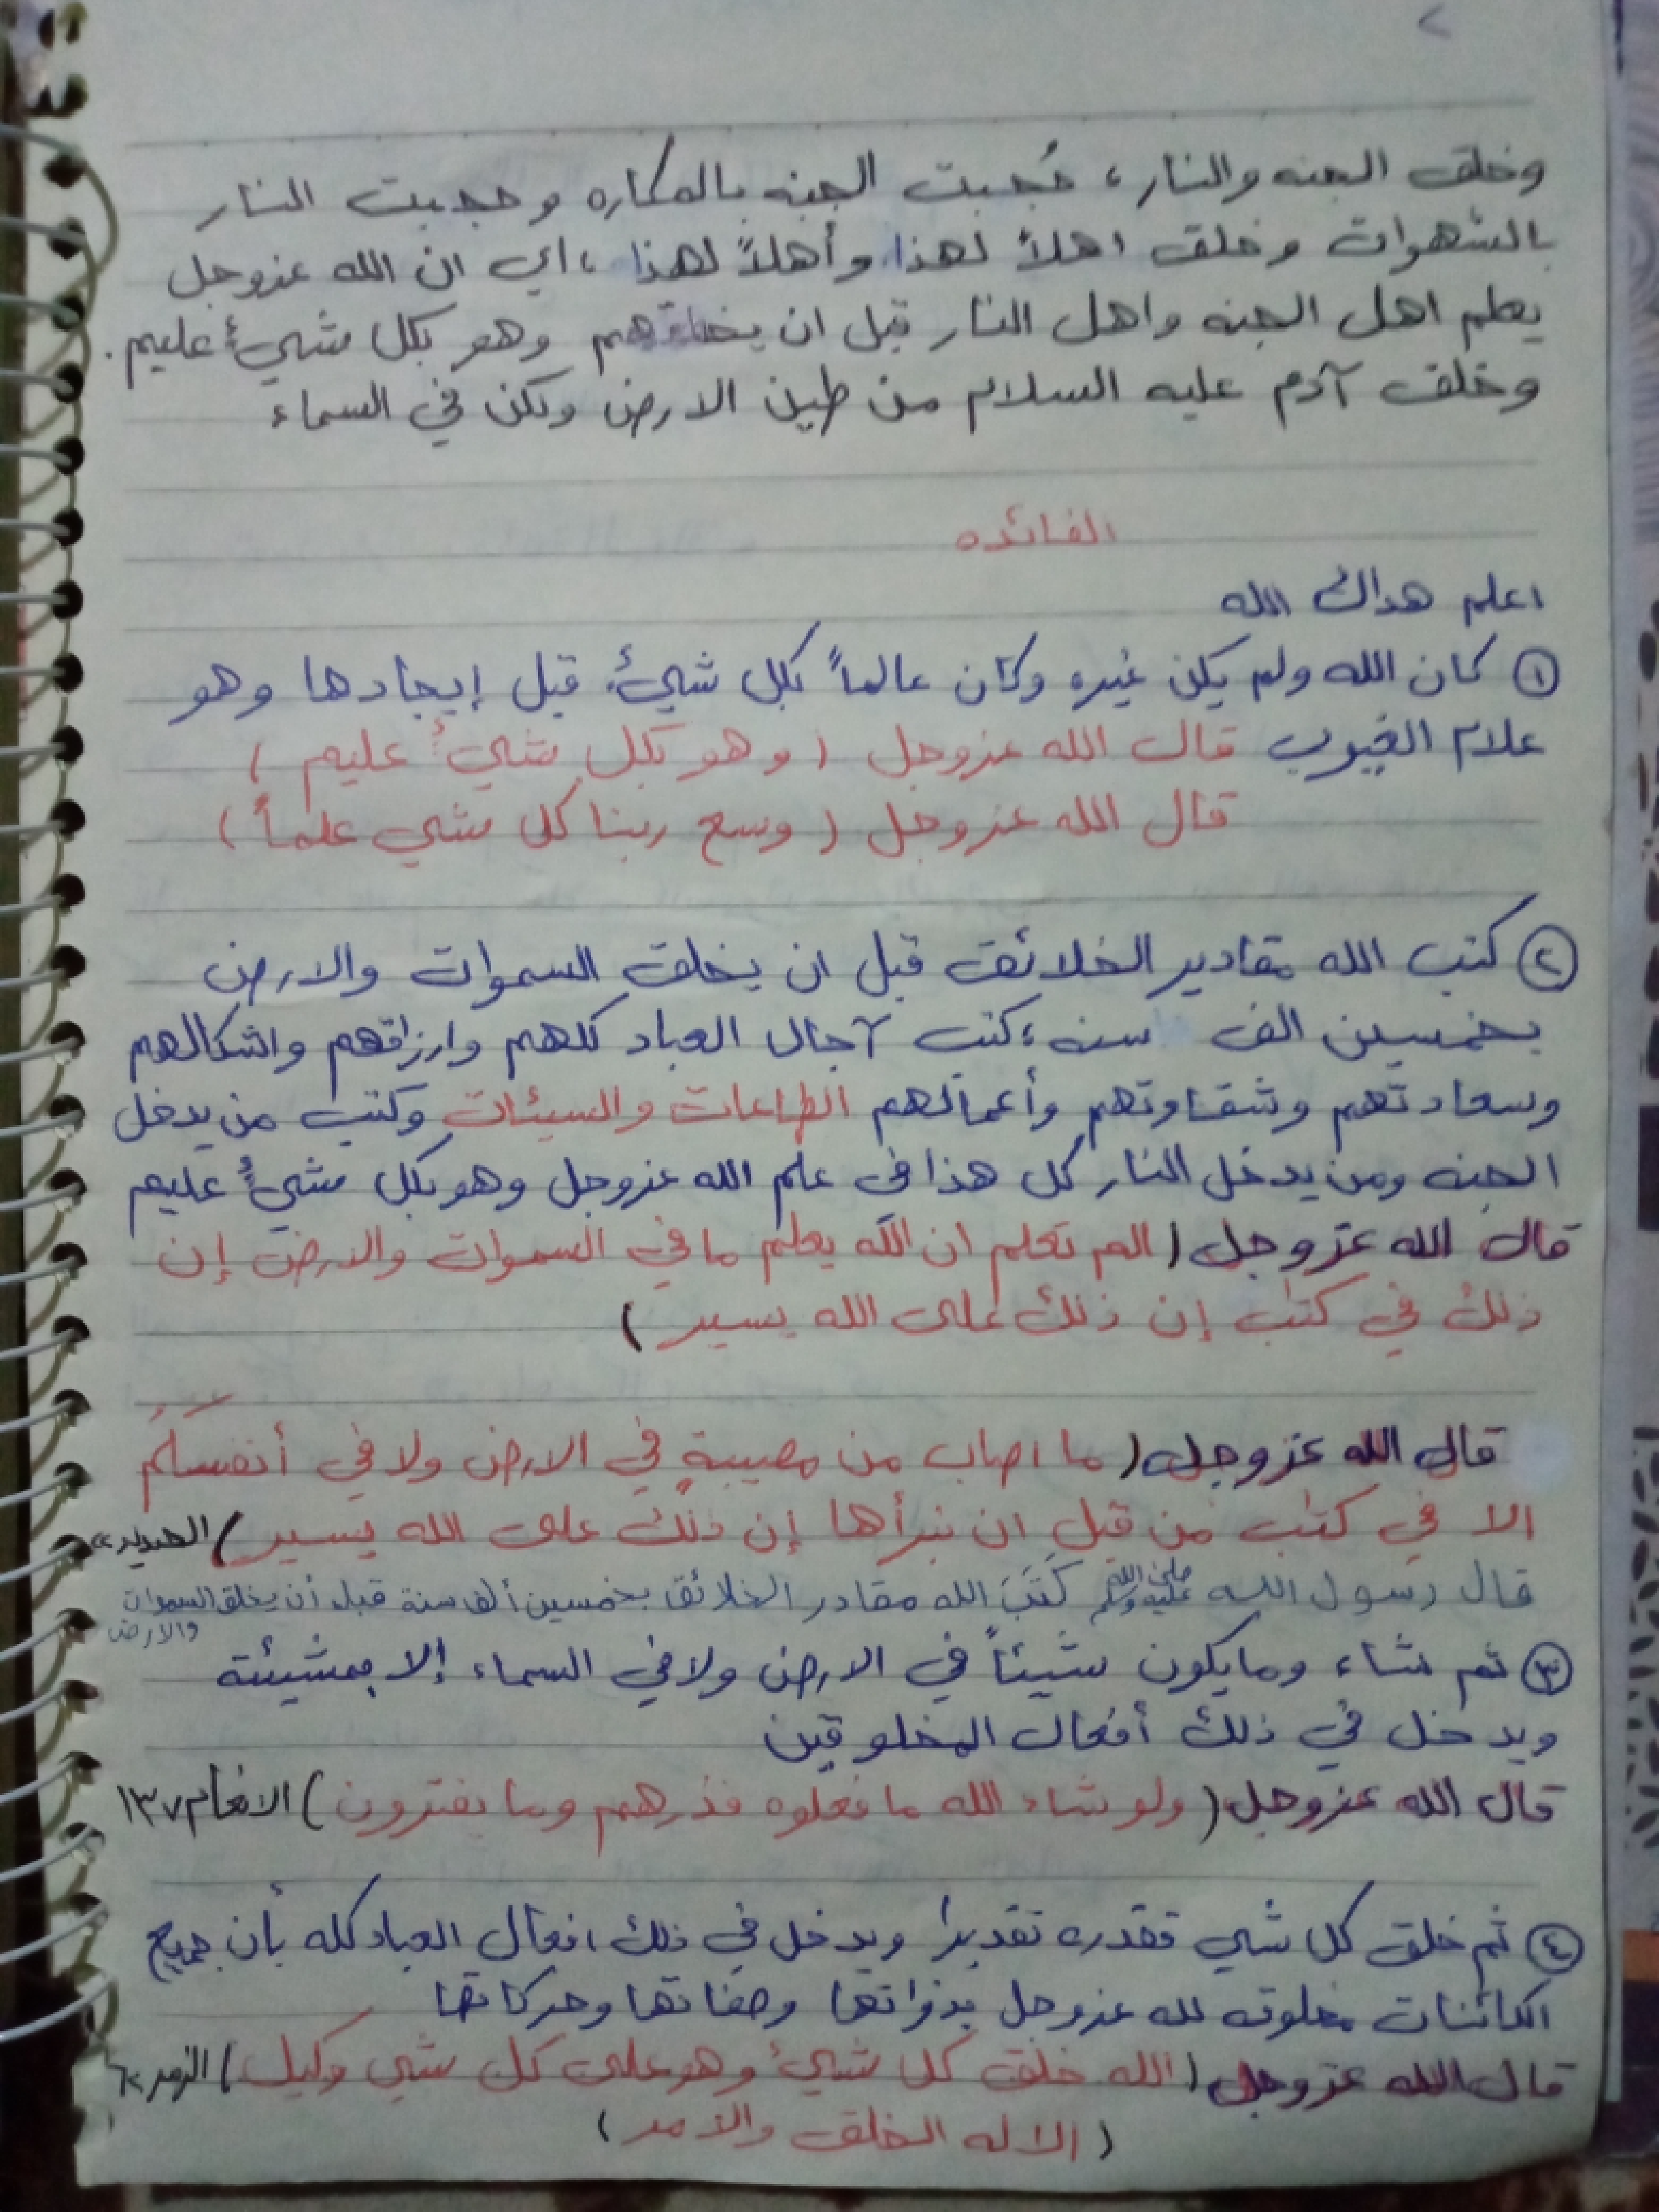 ٢
وخلق الجنه والنار ، حُجبت الجنه بالمكاره وحجبت النار
بالشهوات وخلق اهلاً لهذا وأهلاً لهذا ، اي ان الله عزوجل
يعلم اهل الجنه واهل النار قبل ان يخلقهم وهو بكل شيءٍ عليم .
وخلق آدم عليه السلام من طين الارض ولكن في السماء
الفائده
اعلم هداك الله
① كان الله ولم يكن غيره وكان عالماً بكل شيءٍ قبل إيجادها وهو
علام الغيوب قال الله عزوجل ( وهو بكل شيءٍ عليم )
قال الله عزوجل ( وسع ربنا كل شي علماً )
② كتب الله مقادير الخلائق قبل ان يخلق السموات والارض
بخمسين الف سنه ، كتب آجال العباد كلهم وارزاقهم واشكالهم
وسعادتهم وشقاوتهم وأعمالهم الطاعات والسيئات وكتب من يدخل
الجنه ومن يدخل النار كل هذا في علم الله عزوجل وهو بكل شيءٍ عليم
قال الله عزوجل ( الم تعلم ان الله يعلم ما في السموات والارض إن
ذلك في كتٰب إن ذلك على الله يسير )
قال الله عزوجل ( ما اصاب من مصيبةٍ في الارض ولا في أنفسكُم
الا في كتٰب من قبل ان نبرأها إن ذلك على الله يسير ) الحديد ٢٢
قال رسول الله صلى الله عليه وسلم كَتَبَ الله مقادر الخلائق بخمسين ألف سنة قبل أن يخلق السموات
والارض
③ ثم شاء وما يكون شيئاً في الارض ولا في السماء إلا بمشيئة
ويدخل في ذلك أفعال المخلوقين
قال الله عزوجل ( ولو شاء الله ما فعلوه فذرهم وما يفترون ) الانعام ١٣٧
④ ثم خلق كل شي فقدره تقديرا ويدخل في ذلك افعال العباد كله بأن جميع
الكائنات مخلوقه لله عزوجل بذواتها وصفاتها وحركاتها
قال الله عزوجل ( الله خلق كل شيءٍ وهو على كل شي وكيل ) الزمر ٦٢
( الا له الخلق والامر )